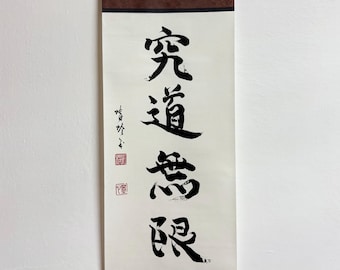 究道無限